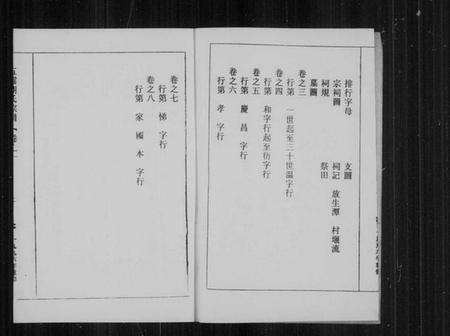 排行字母 支圖
宗祠圖 祠記 放生潭 村堰流
祠規 祭田
墓圖
卷之三
行第 一世起至三十世溫字行
卷之四
行第 和字行起至衍字行
卷之五
行第 慶昌 字行
卷之六
行第 孝 字行
卷之七
行第 悌 字行
卷之八
行第 家國本 字行